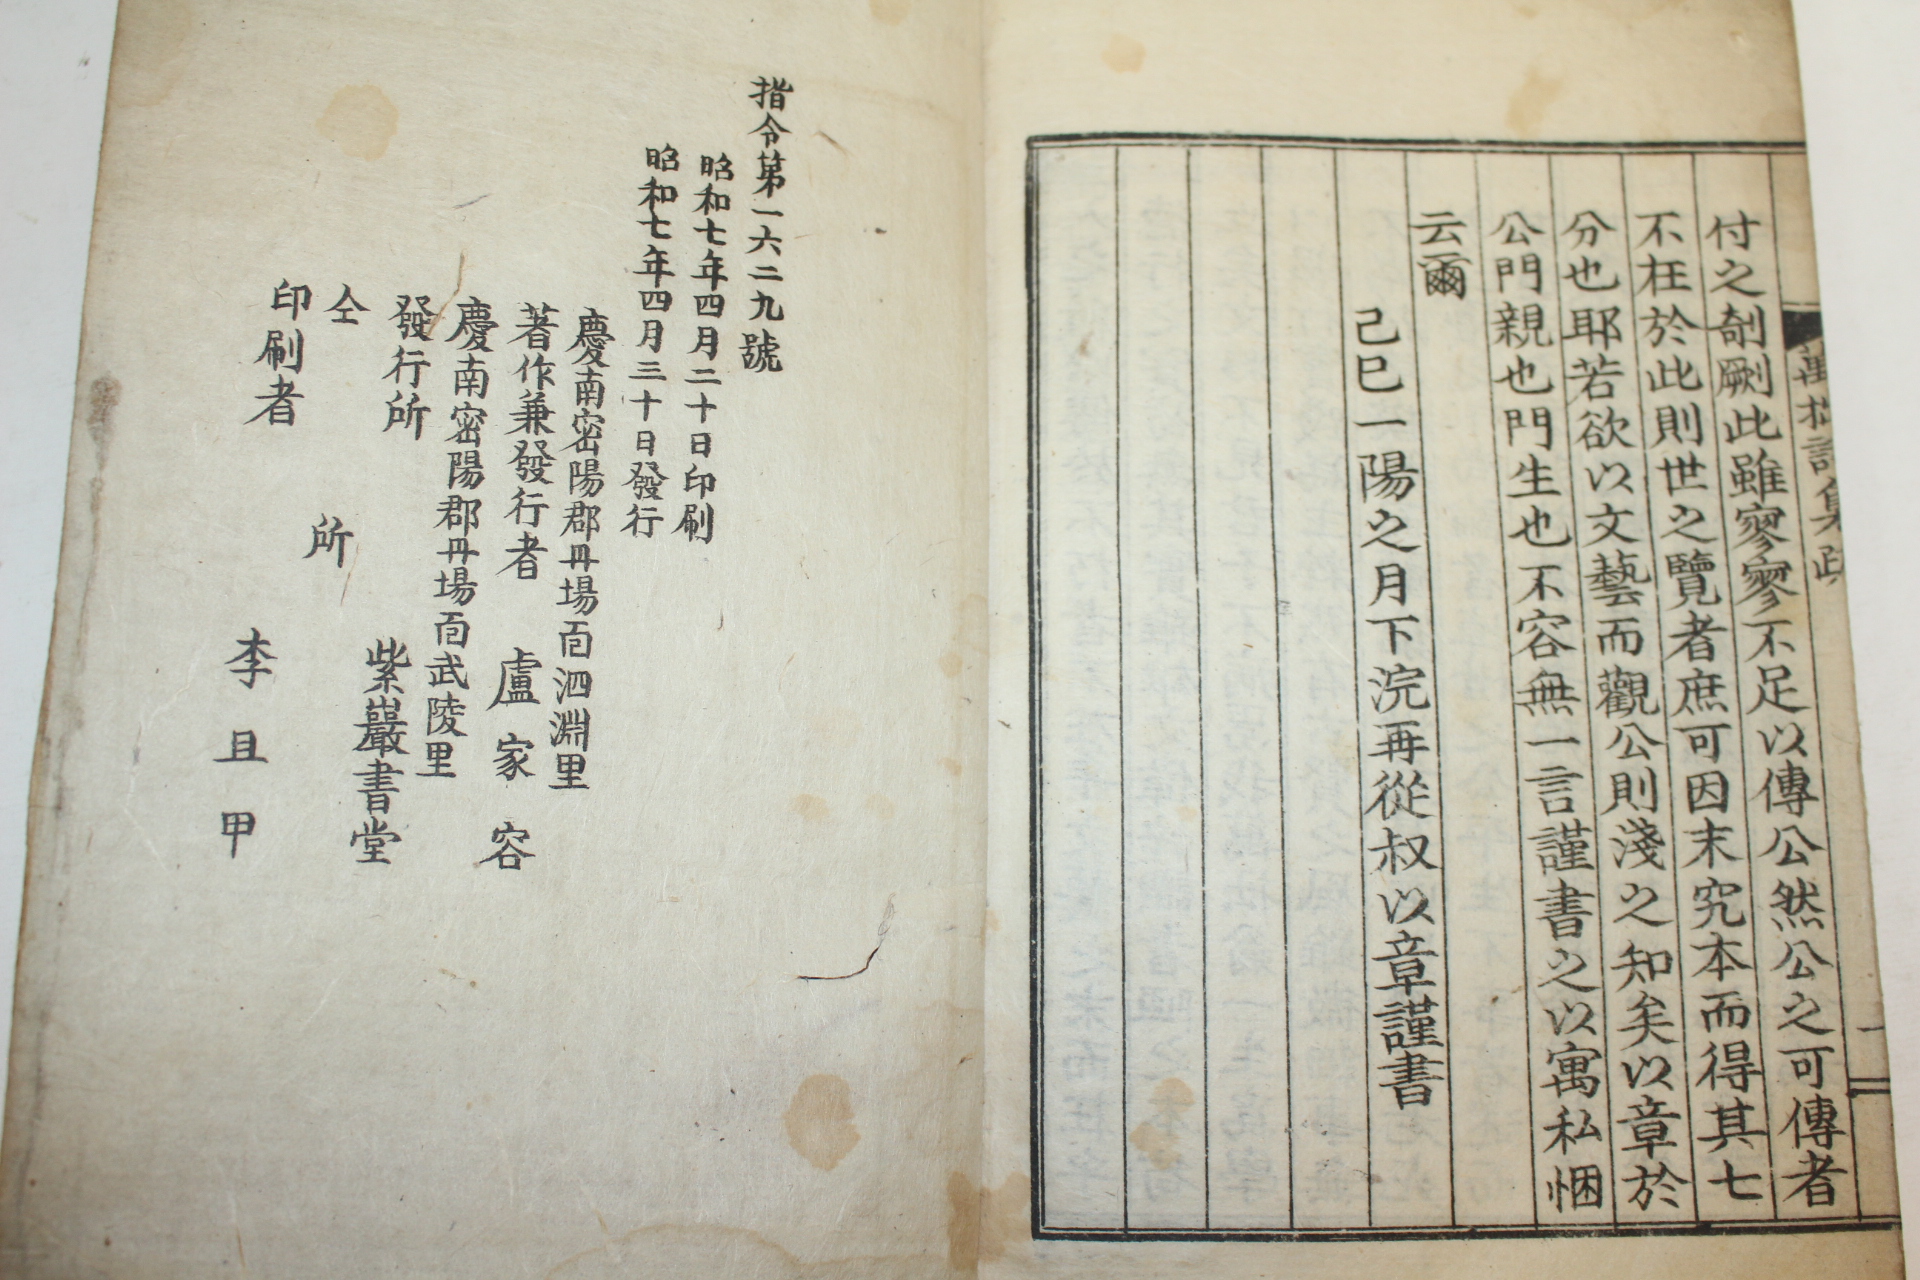 付之剞劂此雖寥寥不足以傳公然公之可傳者
不枉於此則世之覽者庶可因末究本而得其七
分也耶若欲以文藝而觀公則淺之知矣以章於
公門親也門生也不容無一言謹書之以寓私悃
云爾
己巳一陽之月下浣再從叔以章謹書
指令第一六二九號
昭和七年四月二十日印刷
昭和七年四月三十日發行
慶南密陽郡丹場面泗淵里
著作兼發行者 盧家容
慶南密陽郡丹場面武陵里
發行所 紫巖書堂
仝所
印刷者 李且甲